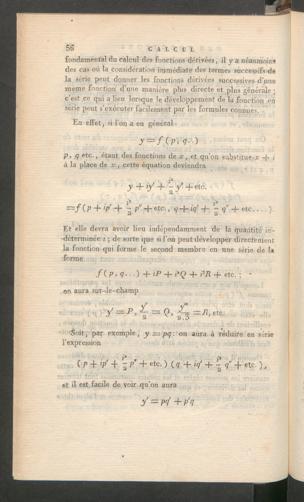 56 CALCUL
fondamental du calcul des fonctions dérivées, il y a néanmoins
des cas où la considération immédiate des termes successifs de
la série peut donner les fonctions dérivées successives d'une
même fonction d'une manière plus directe et plus générale ;
c'est ce qui a lieu lorsque le développement de la fonction en
série peut s'exécuter facilement par les formules connues.
En effet, si l'on a en général
y = f ( p, q.. )
p, q etc., étant des fonctions de x, et qu'on substitue x + i
à la place de x, cette équation deviendra
y + iy' + i²/2 y'' + etc.
= f ( p + ip' + i²/2 p'' + etc., q + iq' + i²/2 q'' + etc.... )
Et elle devra avoir lieu indépendamment de la quantité in-
déterminée i ; de sorte que si l'on peut développer directement
la fonction qui forme le second membre en une série de la
forme
f ( p, q... ) + iP + i²Q + i³R + etc. ;
on aura sur-le-champ
y' = P, y''/2 = Q, y'''/2.3 = R, etc.
Soit, par exemple, y = pq : on aura à réduire en série
l'expression
( p + ip' + i²/2 p'' + etc. ) ( q + iq' + i²/2 q'' + etc. ),
et il est facile de voir qu'on aura
y' = pq' + p'q